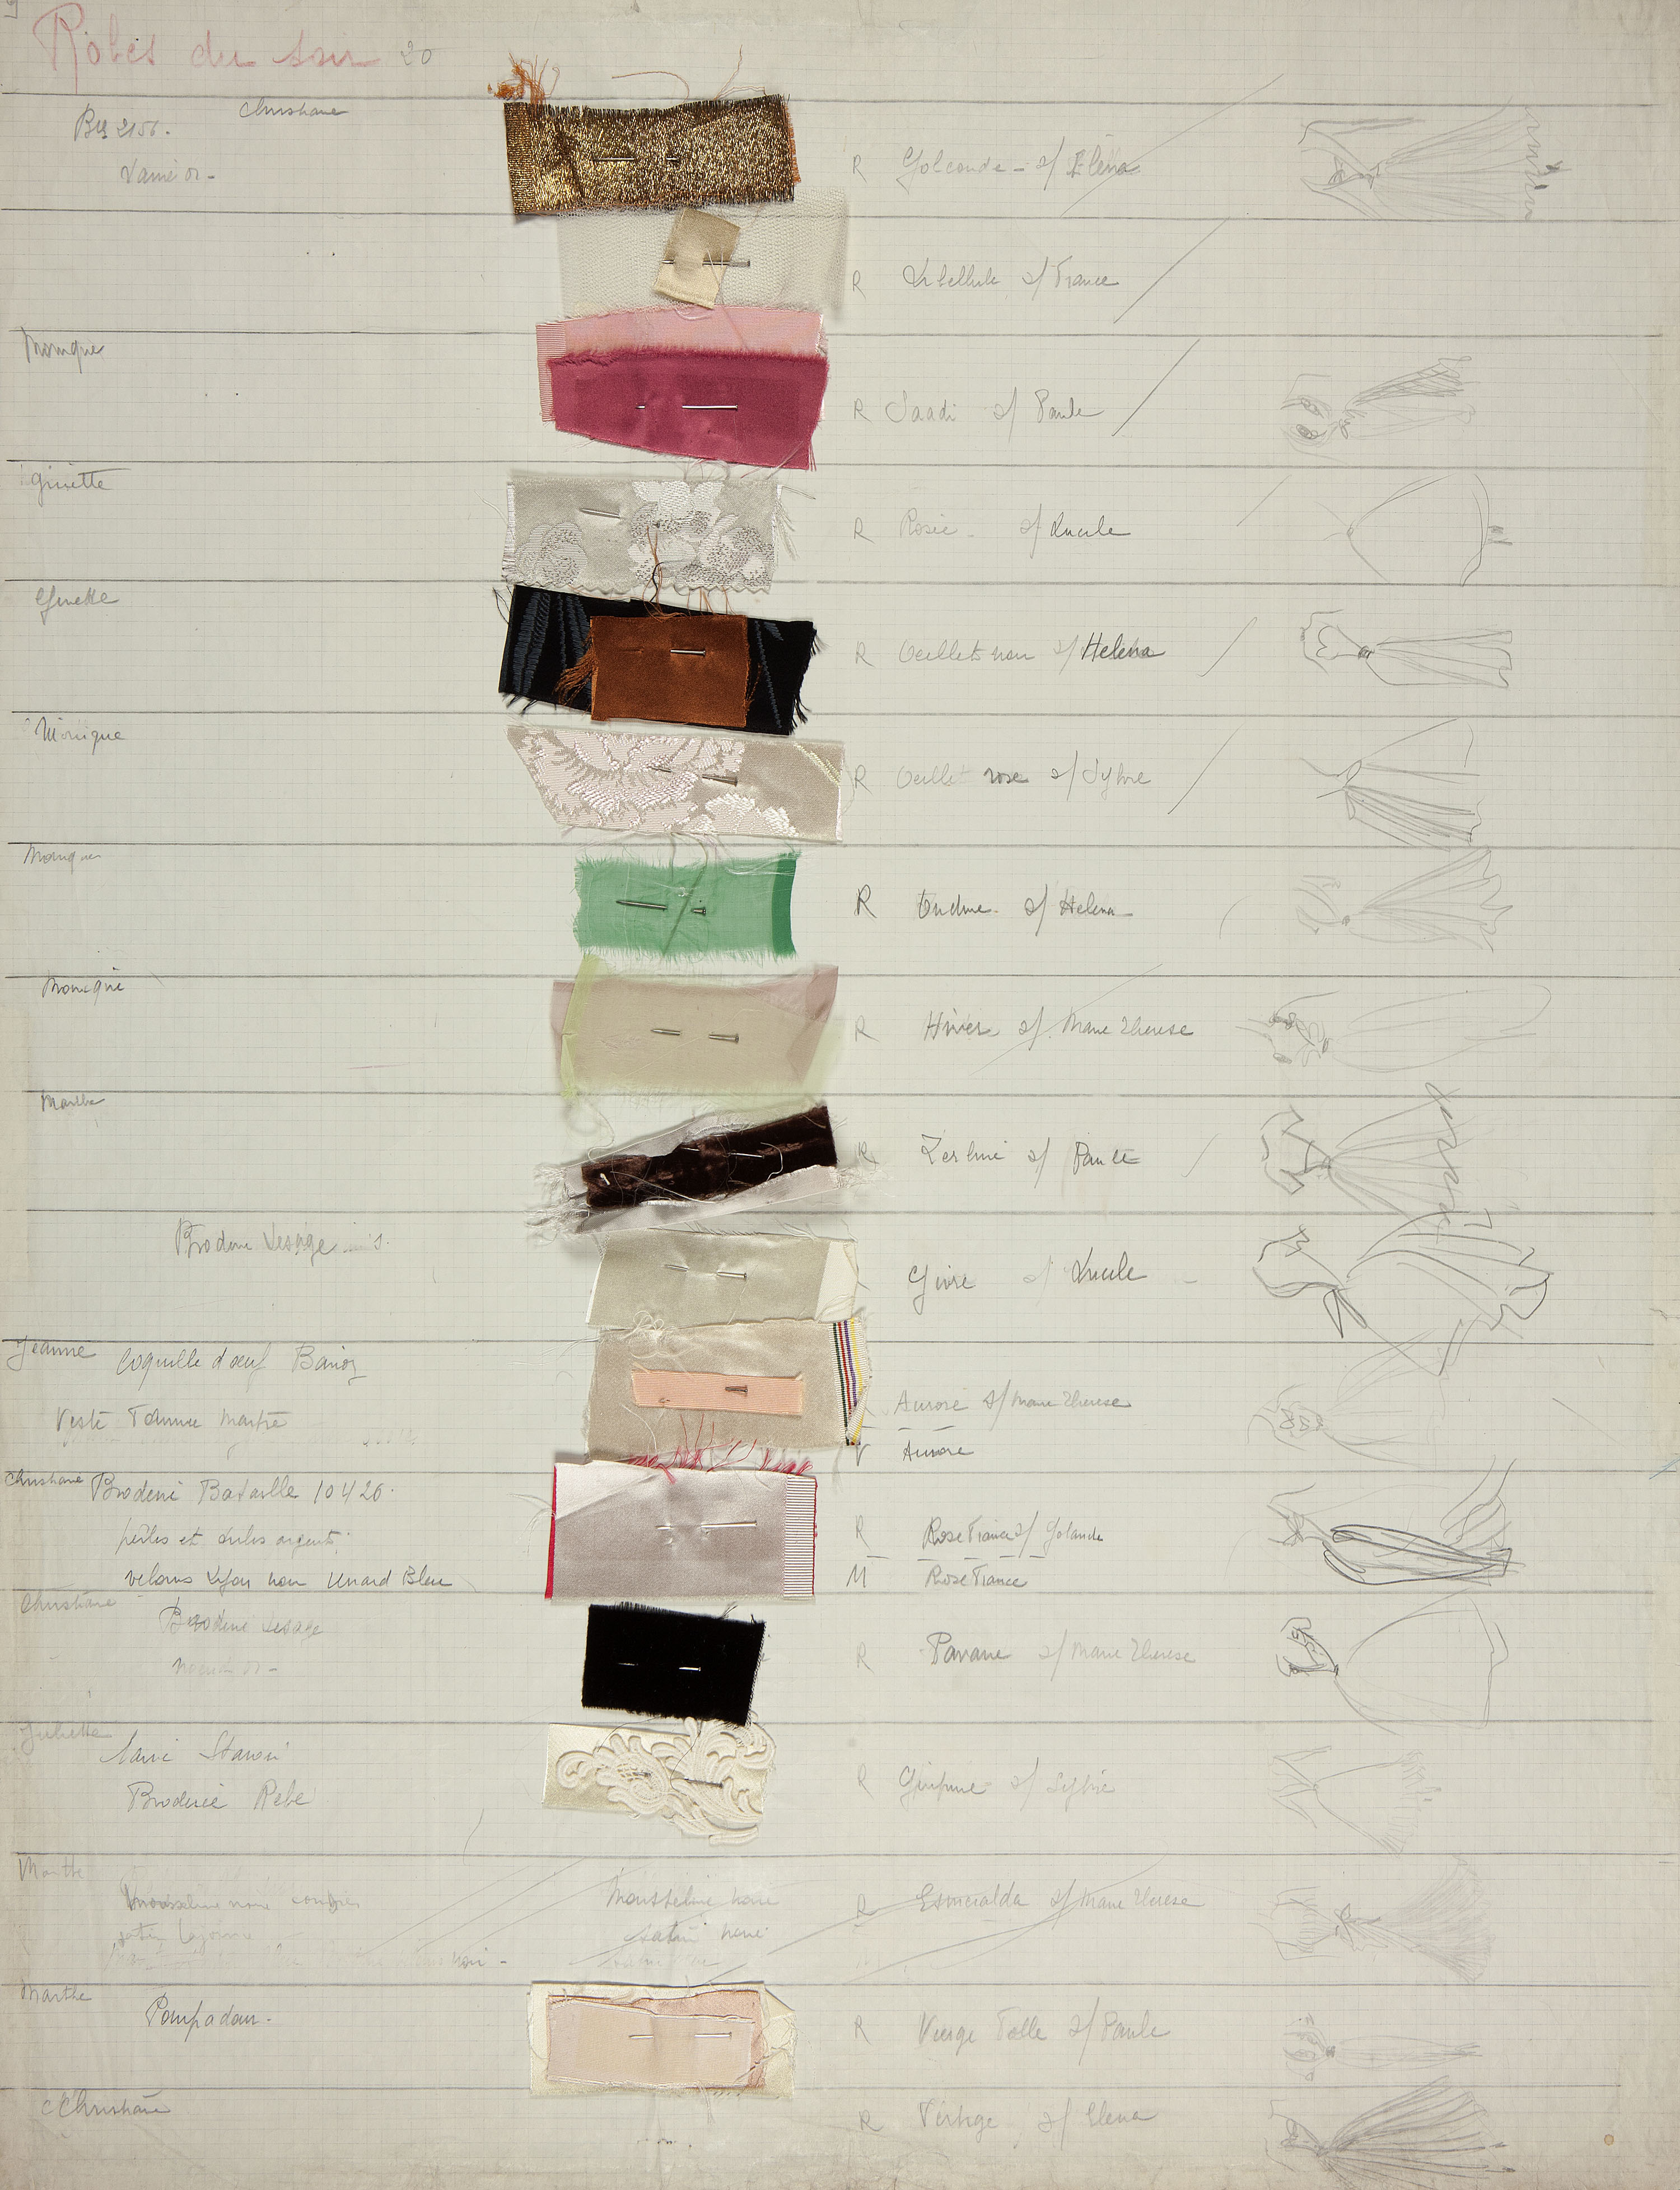 Robes du soir 20
Christiane
Lamé or -
R Golconde - s/ Elena
R Libellule s/ France
Monique
R Saadi s/ Paule
Ginette
R Rosée - s/ Lucile
Ginette
R Oeillet noir s/ Helena
Monique
R Oeillet rose s/ Sylvie
Monique
R Ondine - s/ Helena
Monique
R Hiver s/ Marie Therese
Marthe
R Zerline s/ Paule
Broderie Lesage
Givre s/ Lucile -
Jeanne
Coquille d'oeuf
Veste
Aurore s/ Marie Therese
V Aurore
Christiane
Broderie Bataille 10426.
perles et tubes argent
velours Lyon noir renard Bleu
R Rose France s/ Yolande
M Rose France
Christiane
Broderie Lesage
noeud or -
R Pavane s/ Marie Therese
Juliette
Broderie Rebe
R Guipure s/ Sylvie
Marthe
Mousseline noire
Mousseline noire
satin noir
R Esmeralda s/ Marie Therese
Marthe
Pompadour -
R Vierge Folle s/ Paule
Christiane
R Vertige s/ Elena